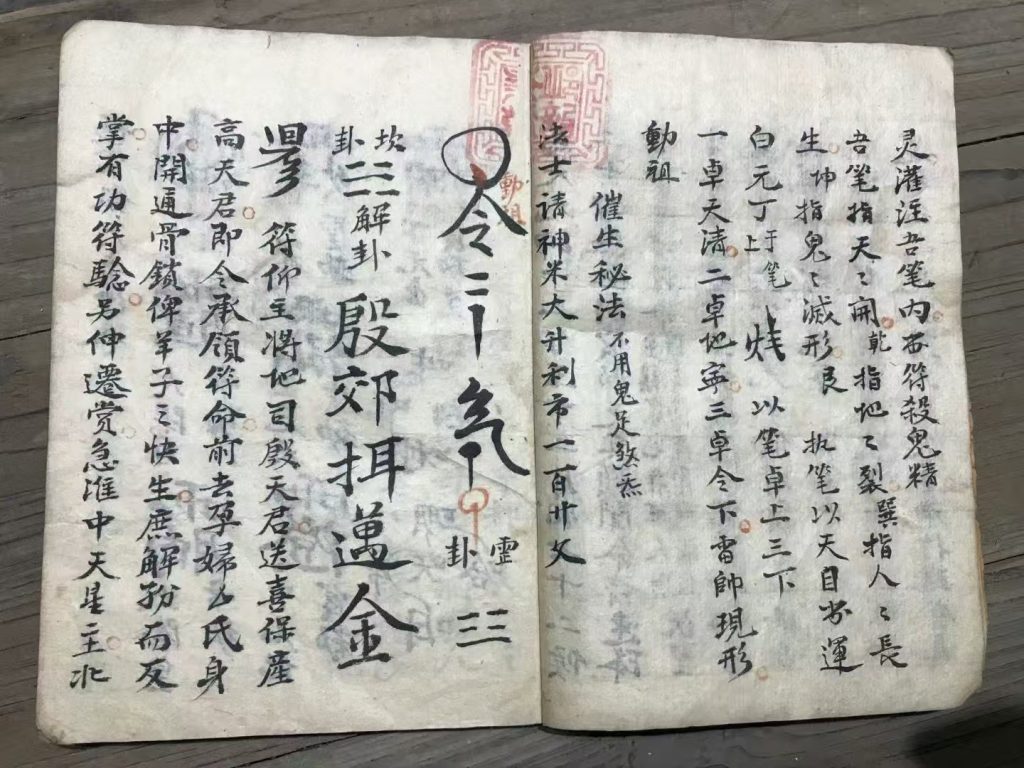 灵灌注吾笔内西符殺鬼精
吾笔指天〻開乾指地〻裂巽指人〻長
生坤指鬼〻滅形艮 执笔以天目 運
白元丁上于笔 以笔卓上三下
一卓天清二卓地寕三卓令下雷帥現形
動祖
催生秘法 不用鬼足煞炁
法士請神米大升利市一百廿文
動祖
令 炁
靈
卦 ☷
坎
卦 解卦 殷郊 邁金
符仰主将地司殷天君送喜保産
高天君即令承領符命前去孕婦厶氏身
中開通骨鎖俾羊子〻快生庶解 而反
掌有功符騐另伸遷赏急准中天星主北